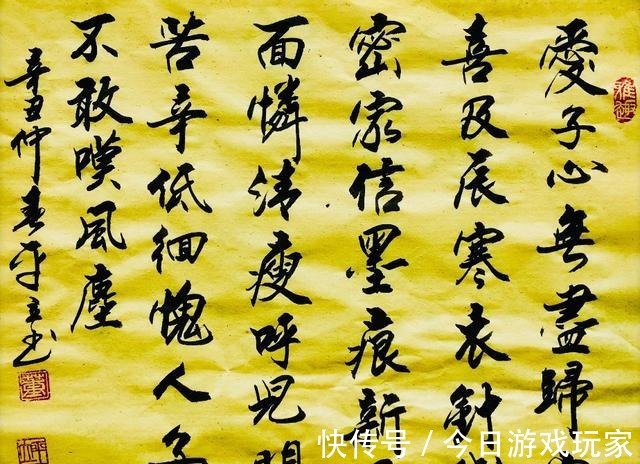 愛子心無盡歸
喜及辰寒衣針
密家信墨痕新
面憐清瘦呼兒問
苦辛低徊愧人子
不敢嘆風塵
辛丑仲春平立书
快传号 / 今日游戏玩家